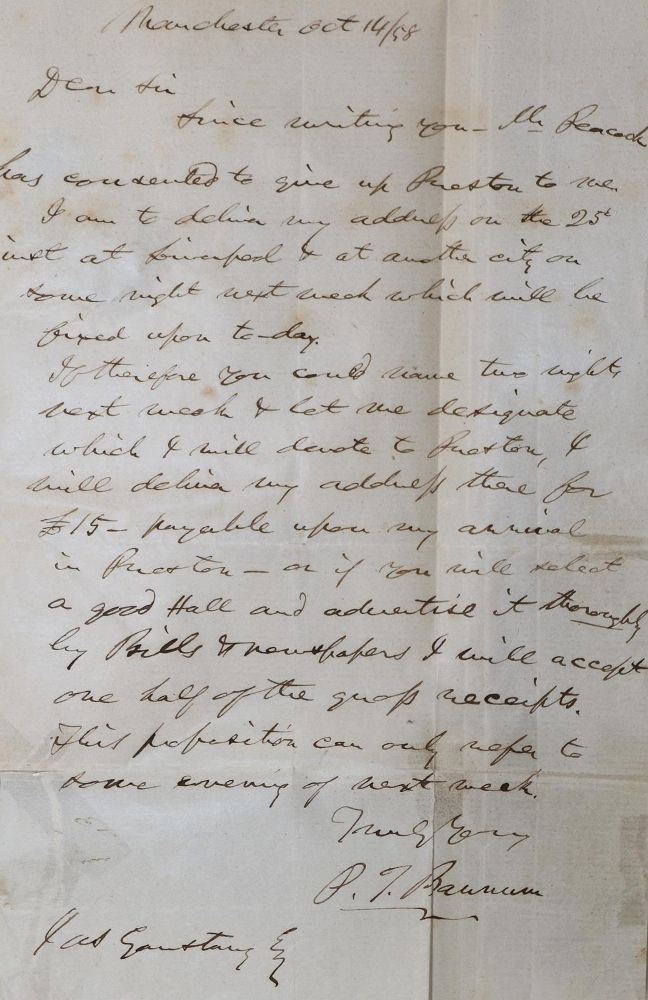 Manchester Oct 14/58
Dear Sir
Since writing you – Mr Peacock
has consented to give up Preston to me
I am to deliver my address on the 25t
inst at Liverpool & at another city on
some night next week which will be
fixed upon to-day.
If therefore you could name two nights
next week & let me designate
which I will devote to Preston, I
will deliver my address there for
£15 – payable upon my arrival
in Preston – or if you will select
a good Hall and advertise it thoroughly
by Bills & newspapers I will accept
one half of the gross receipts.
This proposition can only refer to
some evening of next week.
Truly Yours
P. T. Barnum
Jas Garstang Esq